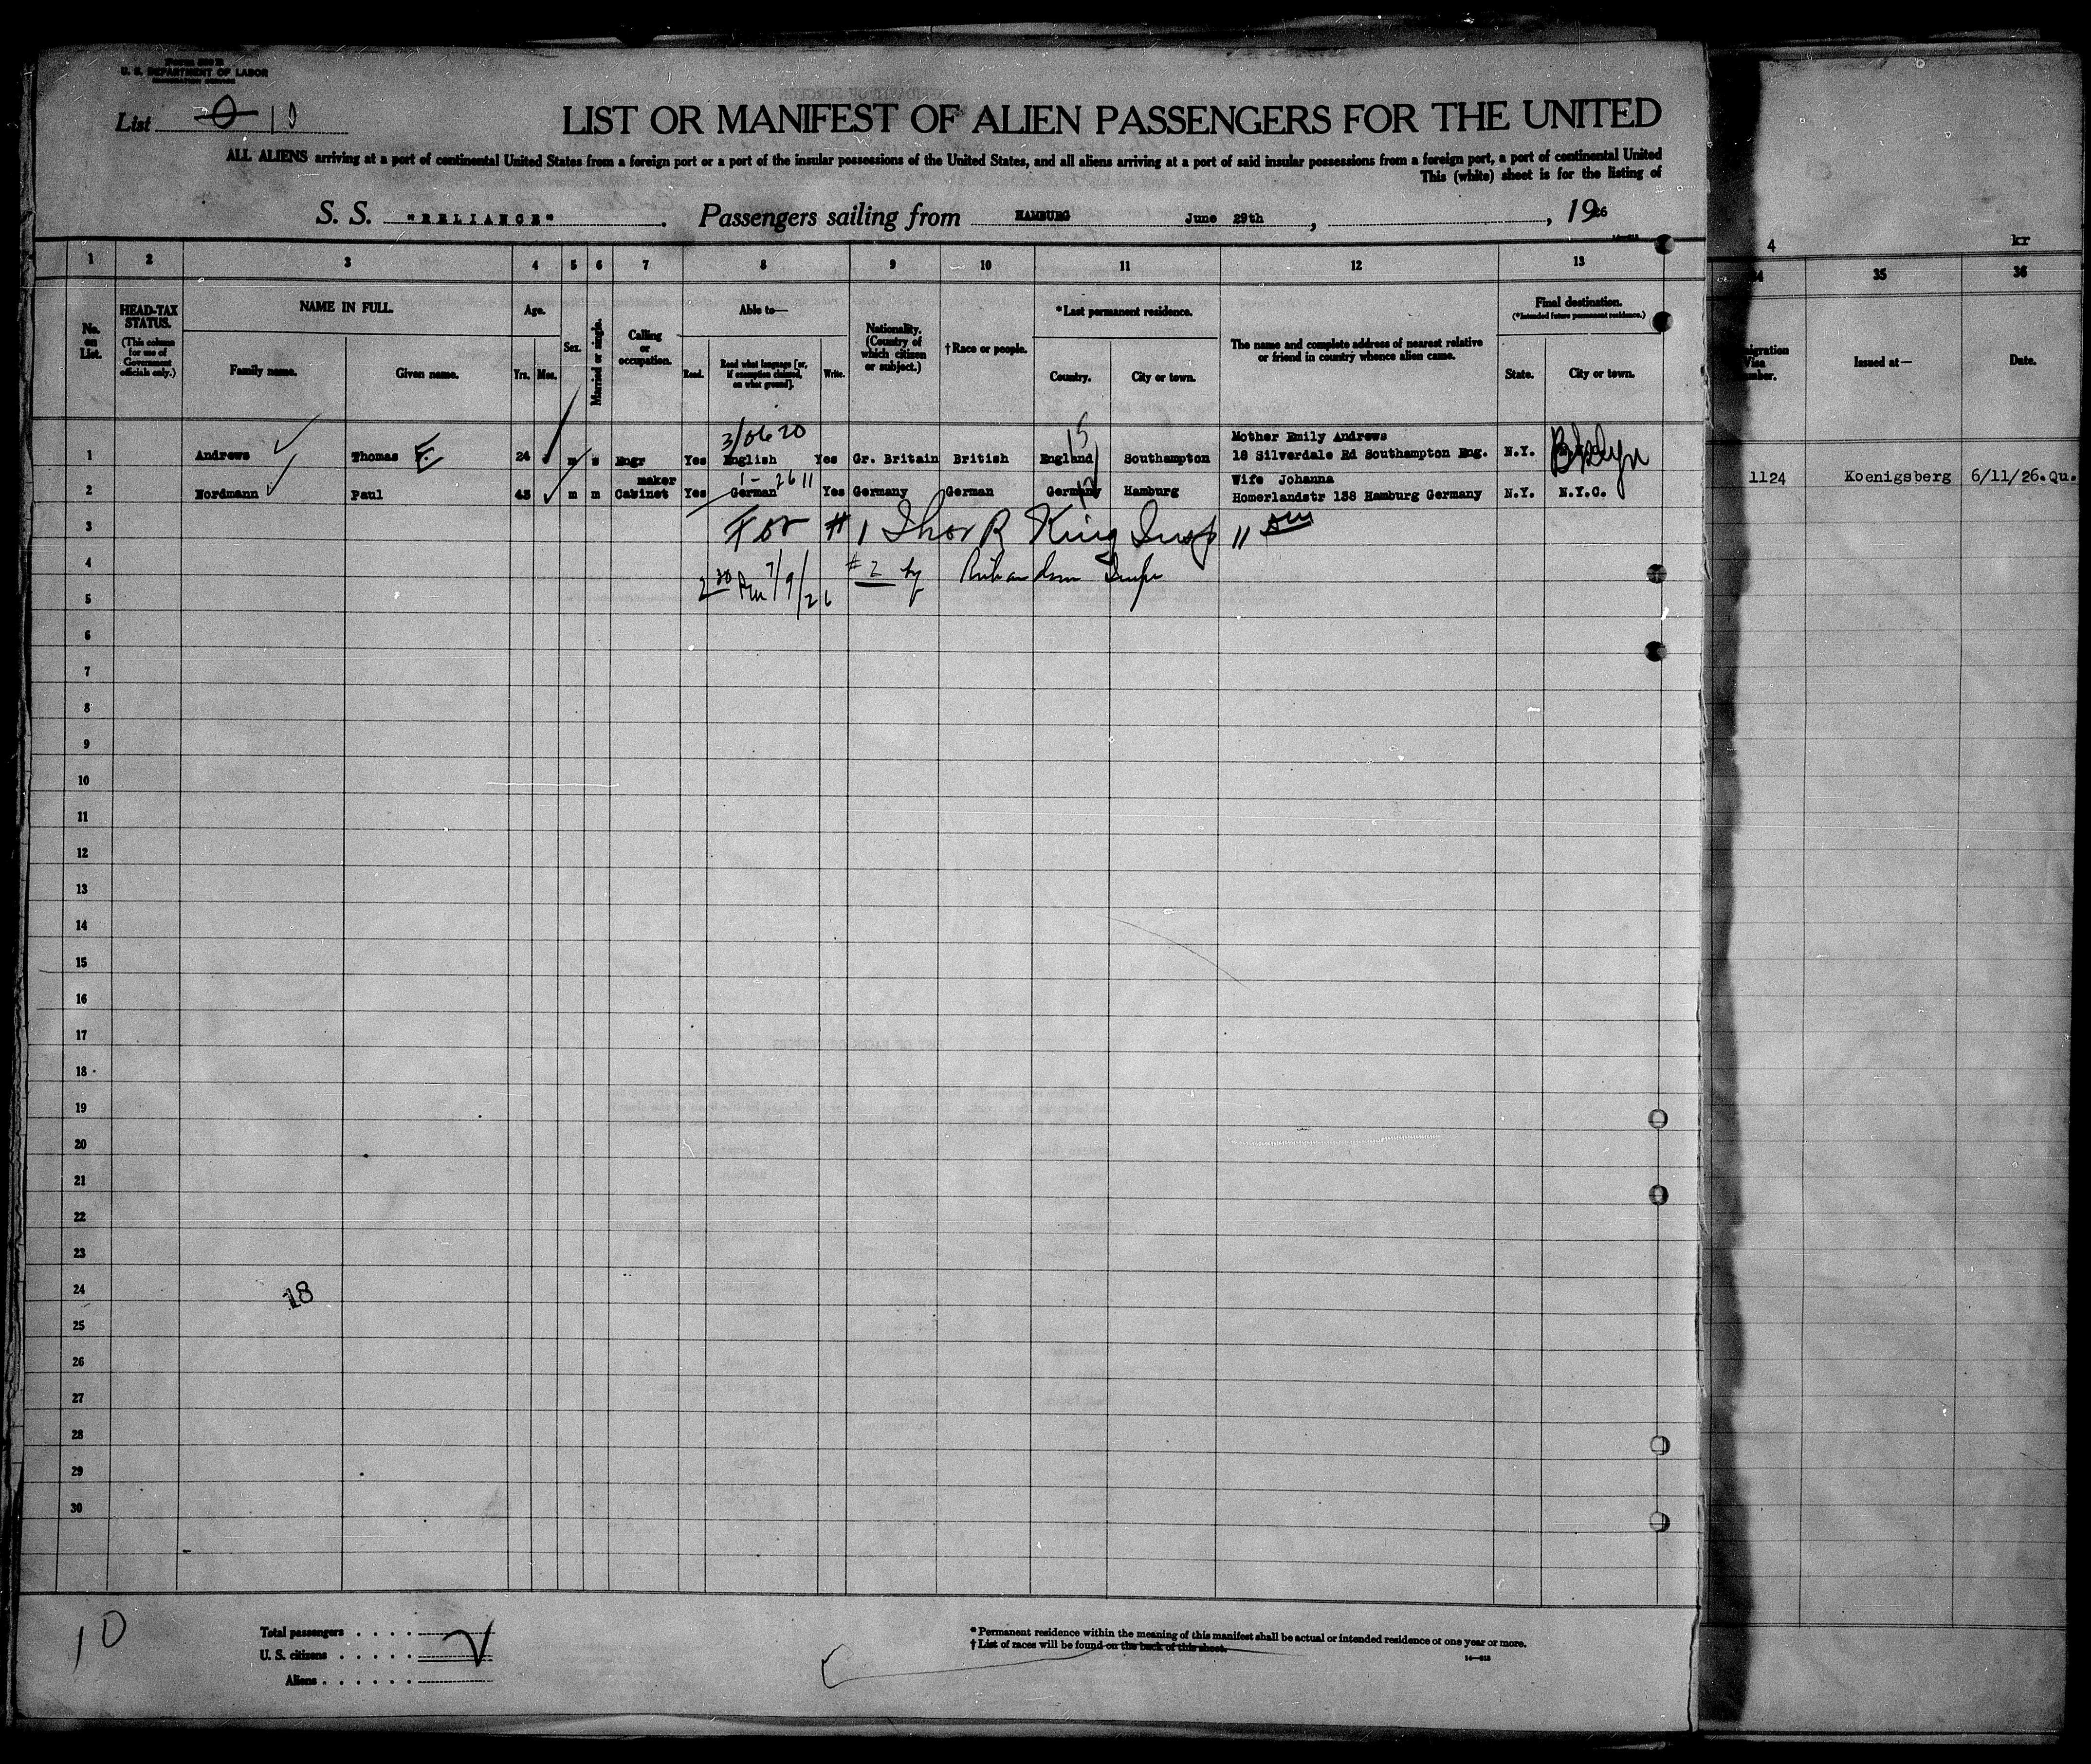 U. S. DEPARTMENT OF LABOR
List 10
LIST OR MANIFEST OF ALIEN PASSENGERS FOR THE UNITED
ALL ALIENS arriving at a port of continental United States from a foreign port or a port of the insular possessions of the United States, and all aliens arriving at a port of said insular possessions from a foreign port, a port of continental United
This (white) sheet is for the listing of
S. S. "RELIANCE". Passengers sailing from HAMBURG June 29th, 1926
4 kr
1 2 3 4 5 6 7 8 9 10 11 12 13 35 36
No. on List.
HEAD-TAX STATUS.
(This column for use of Government officials only.)
NAME IN FULL.
Family name. Given name.
Age.
Yrs. Mos.
Sex.
Married or single.
Calling or occupation.
Able to—
Read. Read what language [or, if exemption claimed, on what ground]. Write.
Nationality. (Country of which citizen or subject.)
†Race or people.
*Last permanent residence.
Country. City or town.
The name and complete address of nearest relative or friend in country whence alien came.
Final destination.
(*Intended future permanent residence.)
State. City or town.
Issued at— Date.
3/0620
Mother Emily Andrews
1 Andrews Thomas E. 24 m s Engr Yes English Yes Gr. Britain British England Southampton 18 Silverdale Rd Southampton Eng. N.Y. Bklyn
maker
Wife Johanna
2 Nordmann Paul 43 m m Cabinet Yes German Yes Germany German Germany Hamburg Homerlandstr 138 Hamburg Germany N.Y. N.Y.C.
1124 Koenigsberg 6/11/26.Qu.
3 For #1 Thos R King Insp 11 am
4 2 30 Pm 7/9/26 #2 by Richardson Insp
5
6
7
8
9
10
11
12
13
14
15
16
17
18
19
20
21
22
23
24 18
25
26
27
28
29
30
10
Total passengers
U. S. citizens
Aliens
* Permanent residence within the meaning of this manifest shall be actual or intended residence of one year or more.
† List of races will be found on the back of this sheet.